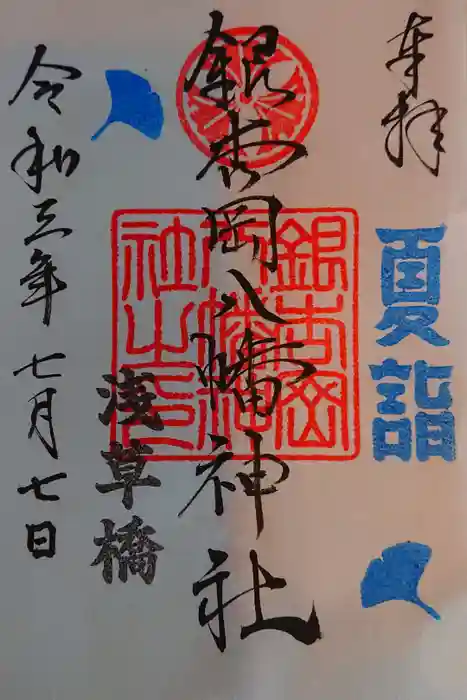 奉拝
夏詣
銀杏岡八幡神社
銀杏岡八幡神社之印
浅草橋
令和三年七月七日